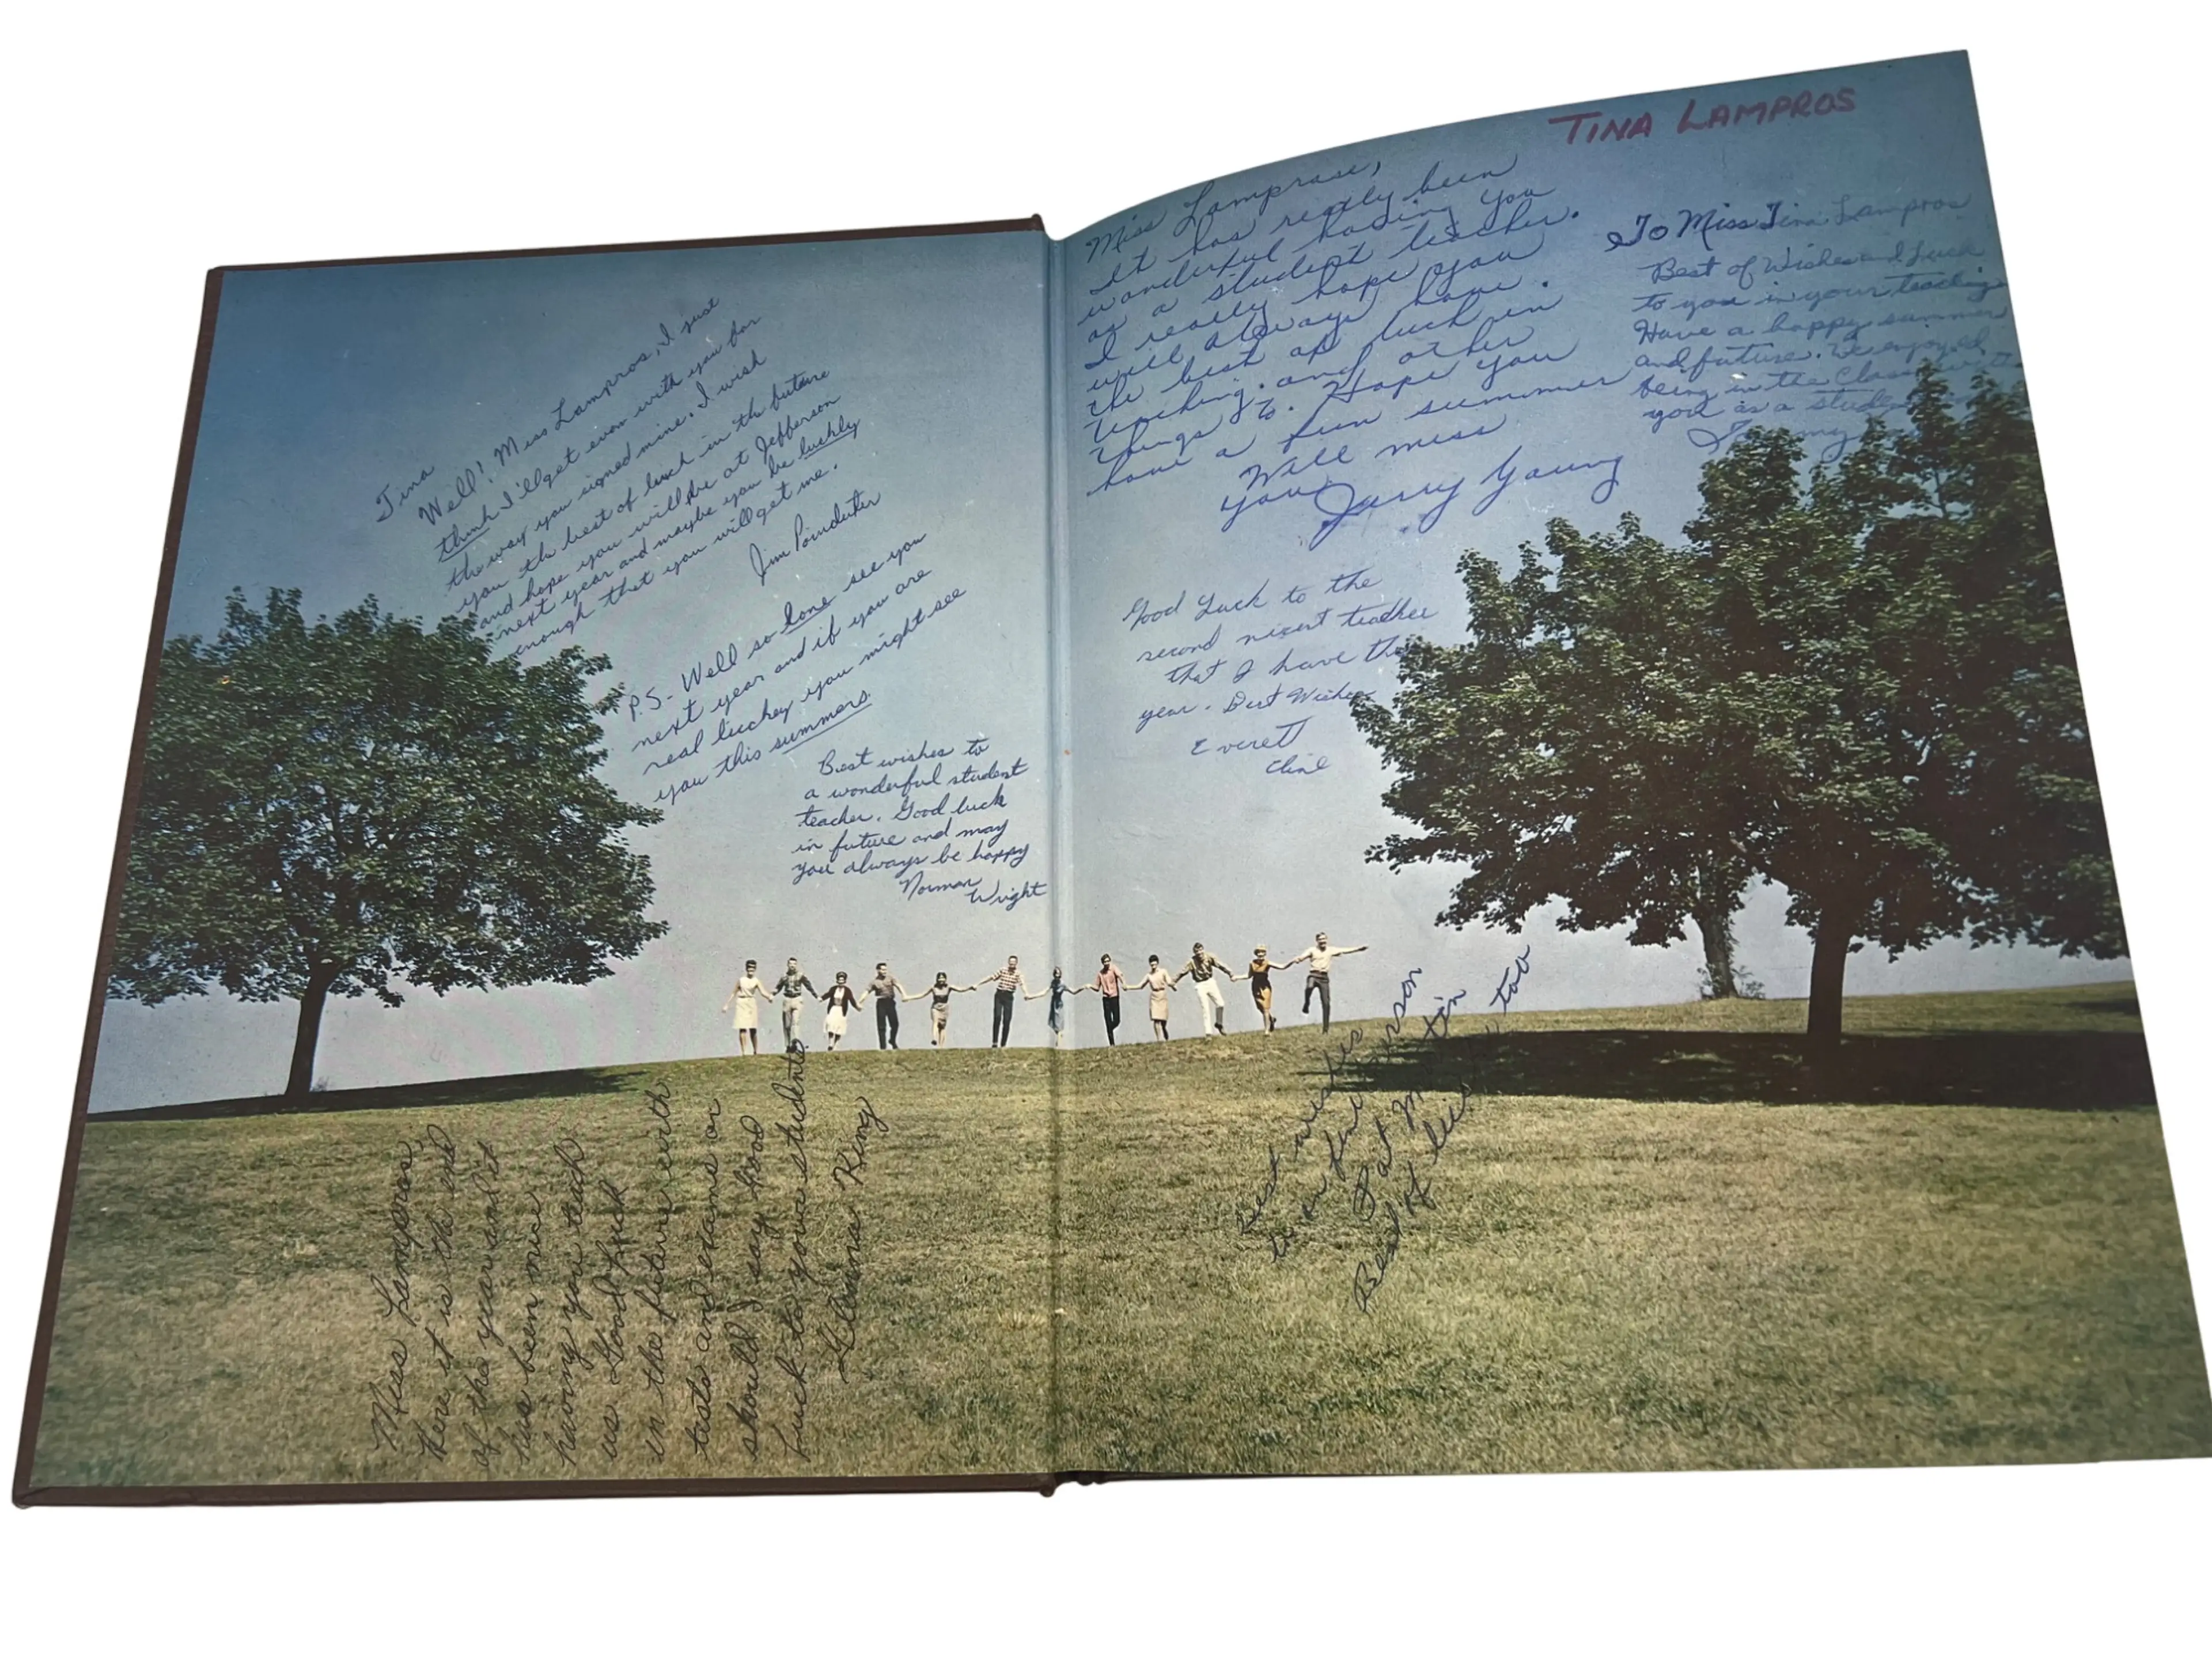 Tina
Well! Miss Lampros, I just
think I'll get even with you for
the way you signed mine. I wish
you the best of luck in the future
and hope you will be at Jefferson
next year and maybe you be luckly
enough that you will get me.
Jim Poindexter
P.S. - Well so lone see you
next year and if you are
real lucckey you might see
you this summers.
Best wishes to
a wonderful student
teacher. Good luck
in future and may
you always be happy
Norman
Wright
Miss Lampros,
Here it is the end
of the year and it
has been nice
having you teach
us Good Luck
in the future with
tests and exams or
should I say good
luck to your students.
Glenna King
TINA LAMPROS
Miss Lamprase,
It has really been
wonderful having you
as a student teacher.
I really hope you
will always have
the best of luck in
teaching and other
things to. Hope you
have a fun summer
Will miss
you,
Jerry Young
To Miss Tina Lampros
Best of Wishes and Luck
to you in your teaching
Have a happy summer
and future. We enjoyed
being in the class with
you as a student
Good Luck to the
second nicest teacher
that I have this
year. Best Wishes
Everett
Cline
Best wishes
to a fine person
Pat Martin
Best of luck too